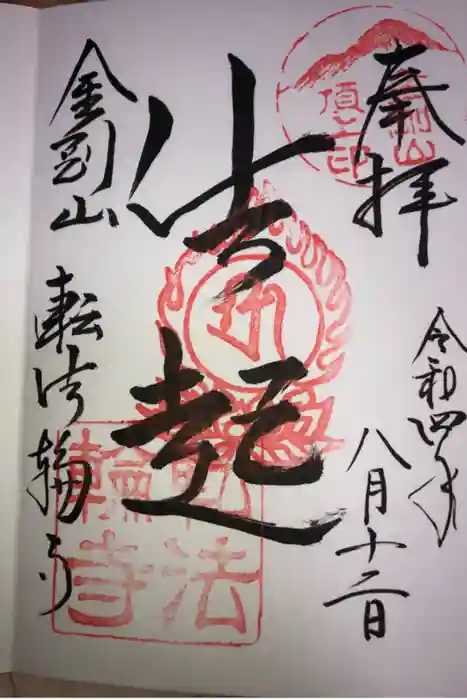 奉拝
令和四年
八月十二日
法起
金剛山
転法輪寺
金剛山
頂印
転法
輪寺